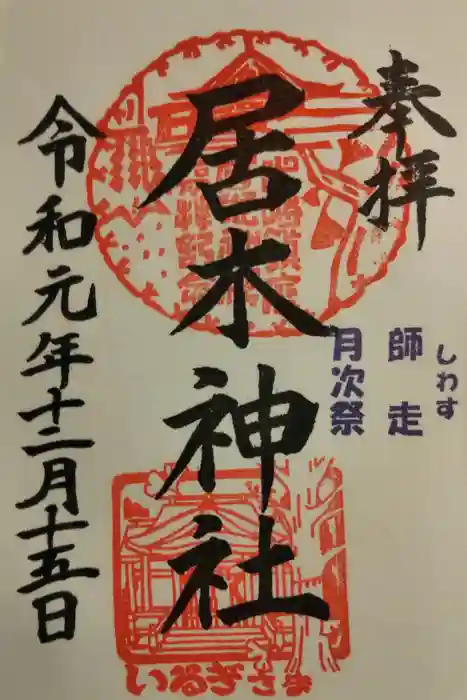 奉拝
師走
しわす
月次祭
居木神社
いるぎさま
令和元年十二月十五日